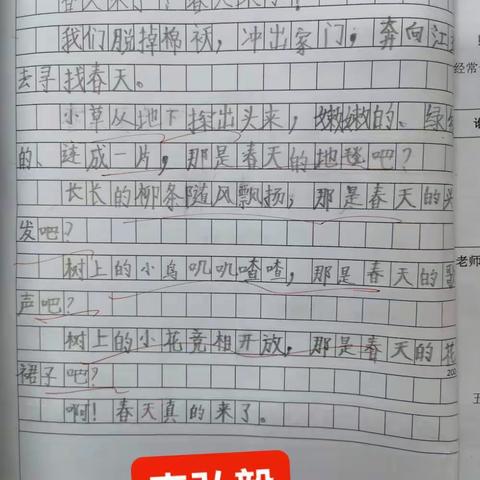 春天来了！春天来了！
我们脱掉棉袄，冲出家门，奔向江
去寻找春天。
小草从地下探出头来，嫩嫩的、绿绿
的、连成一片，那是春天的地毯吧？
长长的柳条随风飘扬，那是春天的头
发吧？
树上的小鸟叽叽喳喳，那是春天的歌
声吧？
树上的小花竞相开放，那是春天的花
裙子吧？
啊！春天真的来了。
经常
老师
五
李弘毅